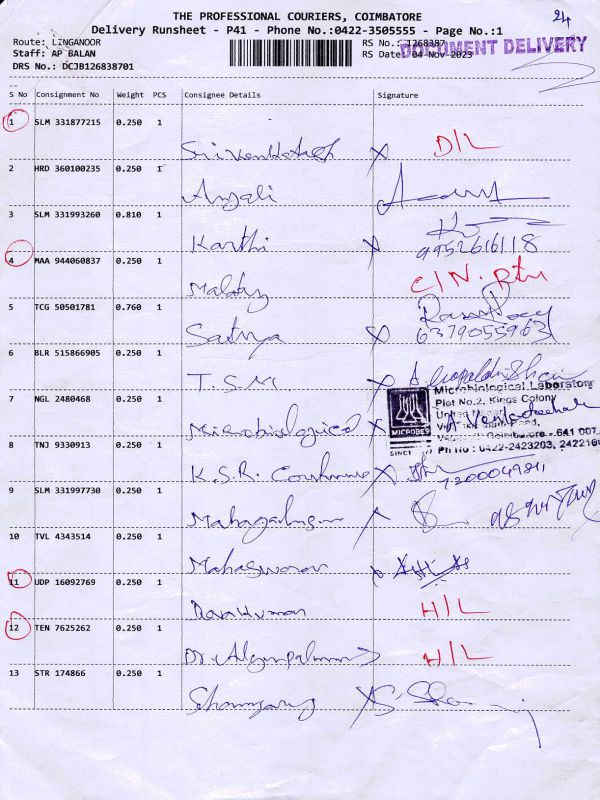 24
THE PROFESSIONAL COURIERS, COIMBATORE
Delivery Runsheet - P41 - Phone No.:0422-3505555 - Page No.:1
Route: LINGANOOR RS No.: 1268387
Staff: AP BALAN RS Date: 04-Nov-2023
DOCUMENT DELIVERY
DRS No.: DCJB126838701
S No Consignment No Weight PCS Consignee Details Signature
1 SLM 331877215 0.250 1
Srivenkatesh X D/L
2 HRD 360100235 0.250 1
Anjali
3 SLM 331993260 0.810 1
Karthi X 9952616118
4 MAA 944060837 0.250 1
5 TCG 50501781 0.760 1
Sathya X 6379055963
6 BLR 515866905 0.250 1
T.S.M X
7 NGL 2480468 0.250 1
Microbiological X
Microbiological Laboratory
Plot No.2, Kings Colony
MICROBES
Coimbatore - 641 007
SINCE Ph No : 0422-2423203,
8 TNJ 9330913 0.250 1
K.S.R. X
9 SLM 331997730 0.250 1
10 TVL 4343514 0.250 1
Maheswaran
11 UDP 16092769 0.250 1
H/L
12 TEN 7625262 0.250 1
Dr. H/L
13 STR 174866 0.250 1